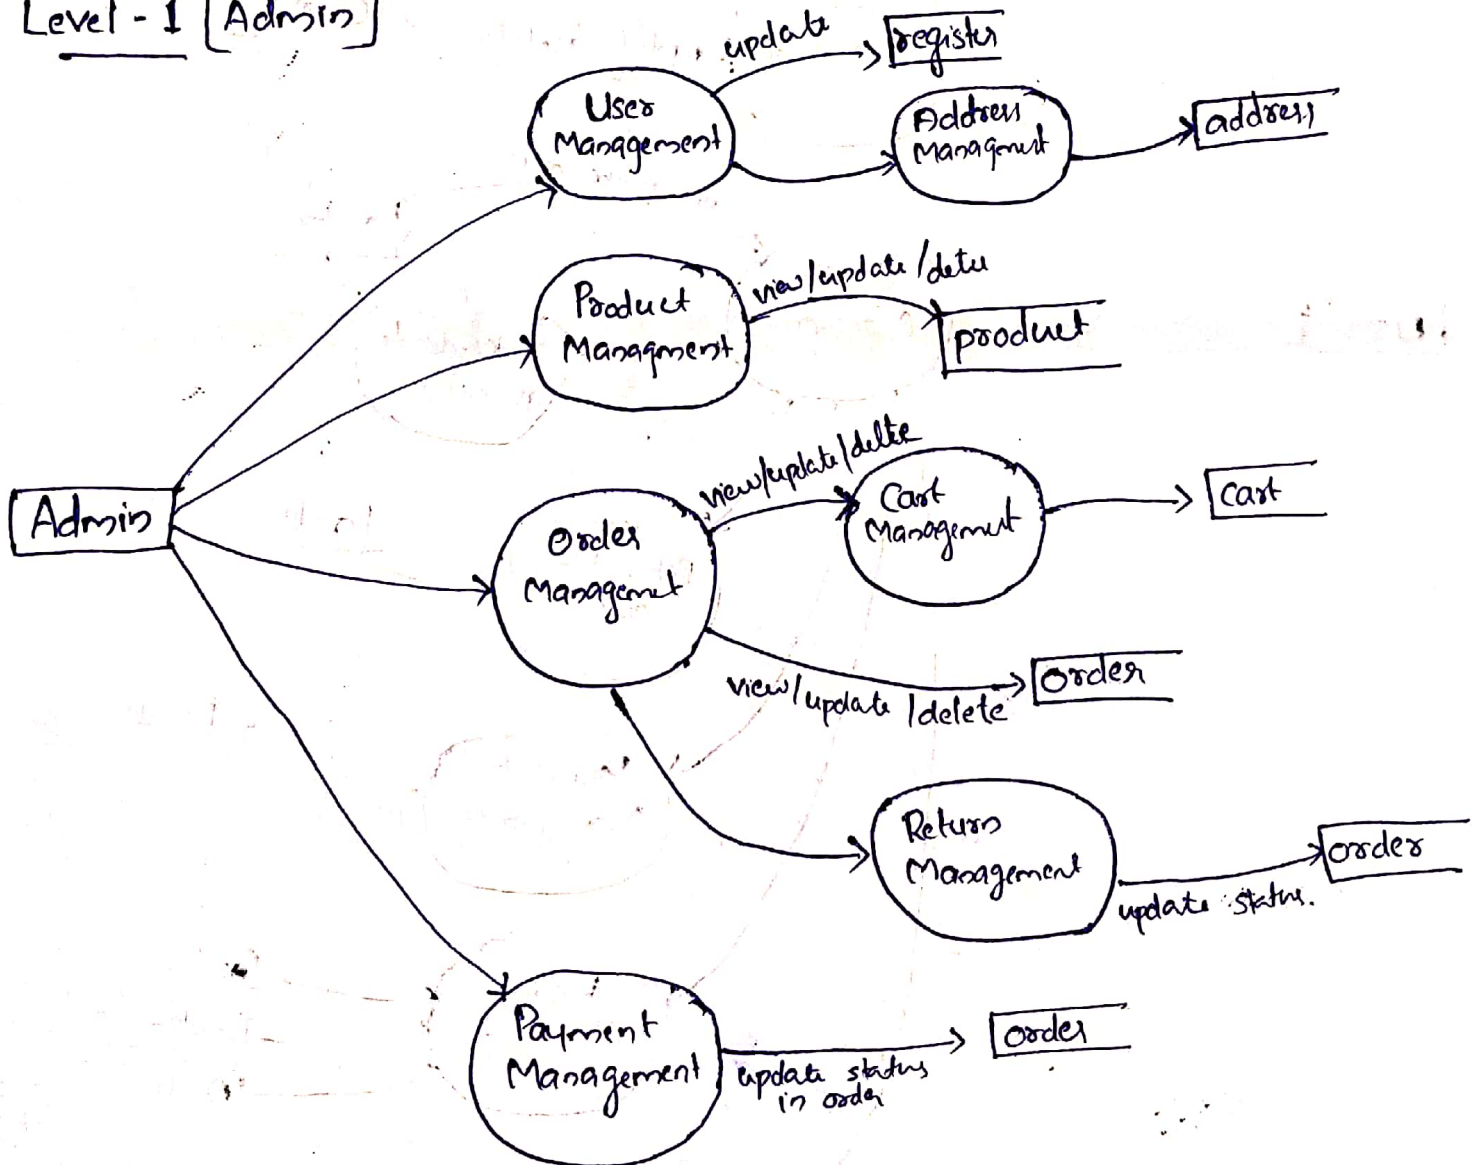 Level - 1 [Admin]
update
register
User
Management
Address
Managment
address
Product
Managment
view/update/detu
product
Admin
view/update/deltee
Cart
Management
cart
Order
Managemet
view/update/delete
order
Return
Management
order
update status.
Payment
Management
update status
in order
order